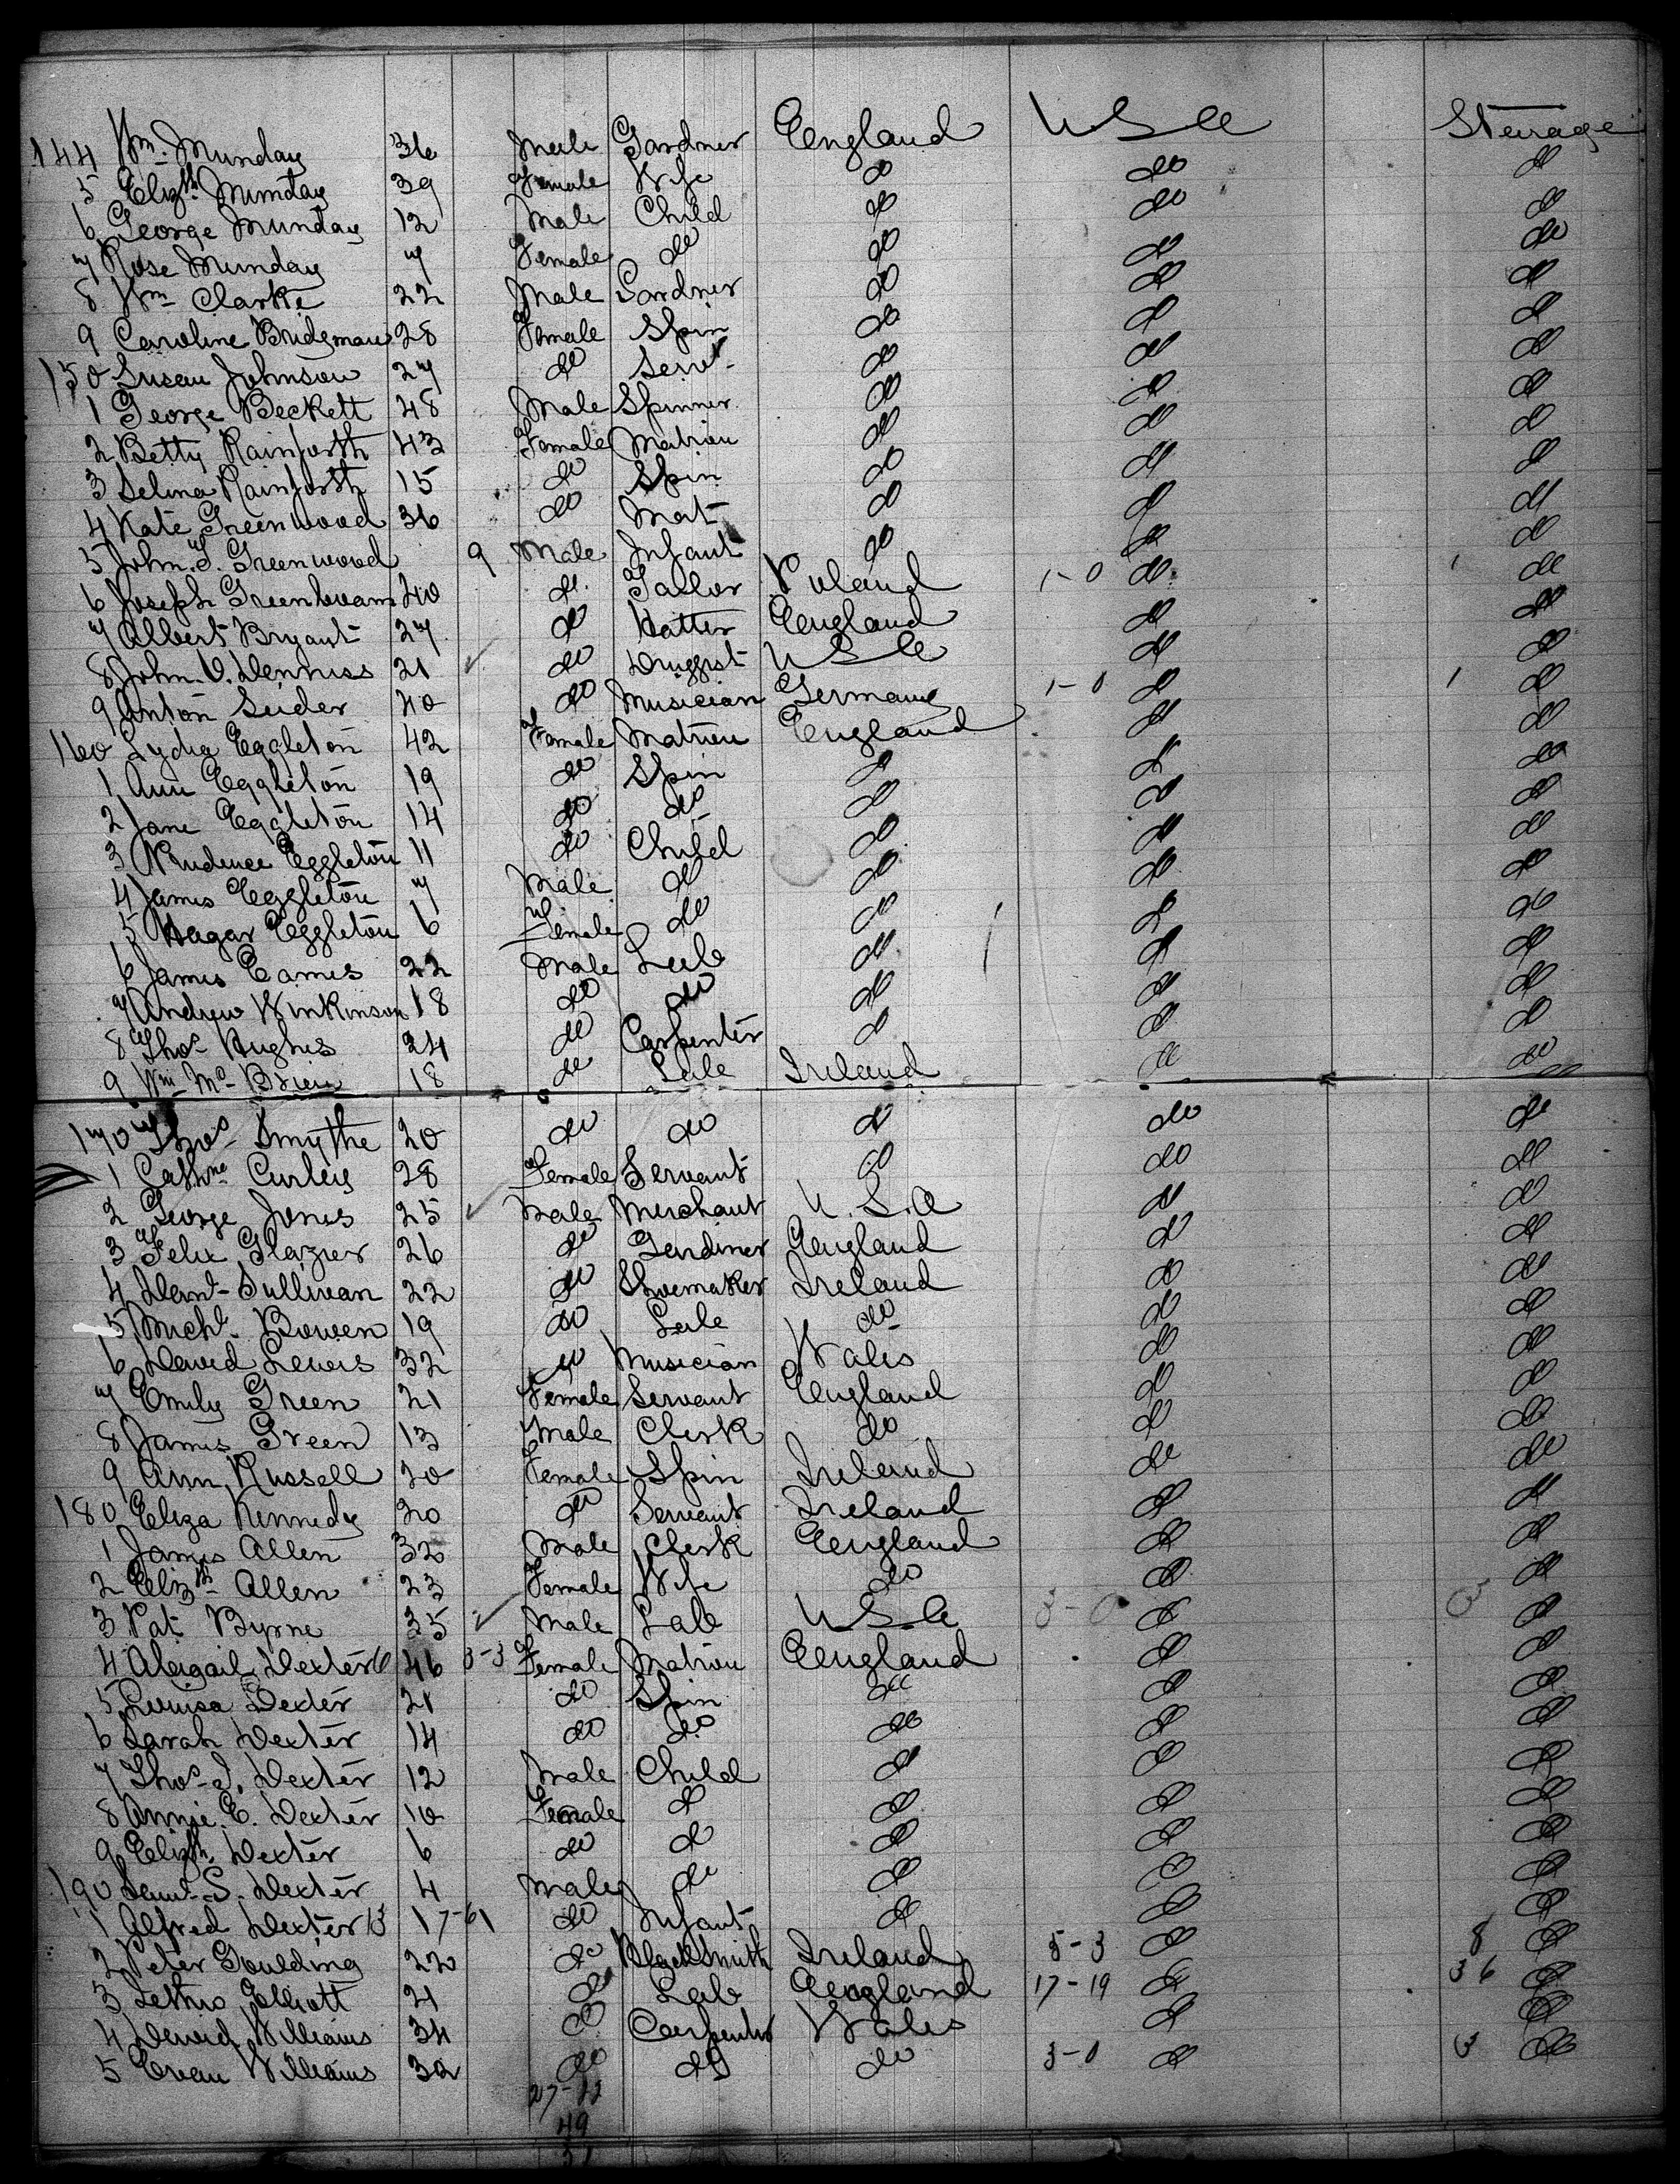 144 Wm. Munday 36 Male Gardner England U S A Steerage
5 Elizth Munday 39 Female Wife do do do
6 George Munday 12 Male Child do do do
7 Rose Munday 7 Female do do do do
8 Wm Clarke 22 Male Gardner do do do
9 Caroline Bridgman 28 Female Spin do do do
150 Susan Johnson 27 do Servt do do do
1 George Beckett 48 Male Spinner do do do
2 Betty Rainforth 43 Female Matron do do do
3 Selina Rainforth 15 do Spin do do do
4 Kate Greenwood 36 do Mat do do do
5 John. T. Greenwood 9 Male Infant do do do
6 Joseph 40 do Tailor Poland 1-0 do 1 do
7 Albert Bryant 27 do Hatter England do do
8 John. V. Denniss 21 do Druggist U S A do do
9 Anton Seider 40 do Musician Germany 1-0 do 1 do
160 Lydia Eggleton 42 Female Matron England do do
1 Ann Eggleton 19 do Spin do do do
2 Jane Eggleton 14 do do do do do
3 Prudence Eggleton 11 do Child do do do
4 James Eggleton 7 Male do do do do
5 Hagar Eggleton 6 Female do do do do
6 James Eames 22 Male Lab do do do
7 Andrew Winkinson 18 do do do do do
8 Thos Hughes 24 do Carpenter do do do
9 Wm Mc Brien 18 do Lab Ireland do do
170 Thos Smythe 20 do do do do do
1 Cathne Curley 28 Female Servant do do do
2 George Jones 25 Male Merchant U. S. A do do
3 Felix Glazier 26 do Gardiner England do do
4 Danl Sullivan 22 do Shoemaker Ireland do do
5 Michl Bowen 19 do Lab do do do
6 David Lewis 32 do Musician Wales do do
7 Emily Green 21 Female Servant England do do
8 James Green 13 Male Clerk do do do
9 Ann Russell 20 Female Spin Ireland do do
180 Eliza Kennedy 20 do Servant Ireland do do
1 James Allen 32 Male Clerk England do do
2 Elizth Allen 23 Female Wife do do do
3 Pat Byrne 35 Male Lab U S A 3-0 do 3 do
4 Abigail Dexter 46 3-3 Female Matron England do do
5 Louisa Dexter 21 do Spin do do do
6 Sarah Dexter 14 do do do do do
7 Thos J. Dexter 12 Male Child do do do
8 Annie. E. Dexter 10 Female do do do do
9 Elizth Dexter 6 do do do do do
190 Saml. S. Dexter 4 Male do do do do
1 Alfred Dexter 17-61 do Infant do do do
2 Peter Goulding 22 do BlackSmith Ireland 5-3 do 8 do
3 Elliott 21 do Lab England 17-19 do 36 do
4 David Williams 34 do Carpenter Wales do do
5 Evan Williams 32 do do do 3-0 do 3 do
27-22
49